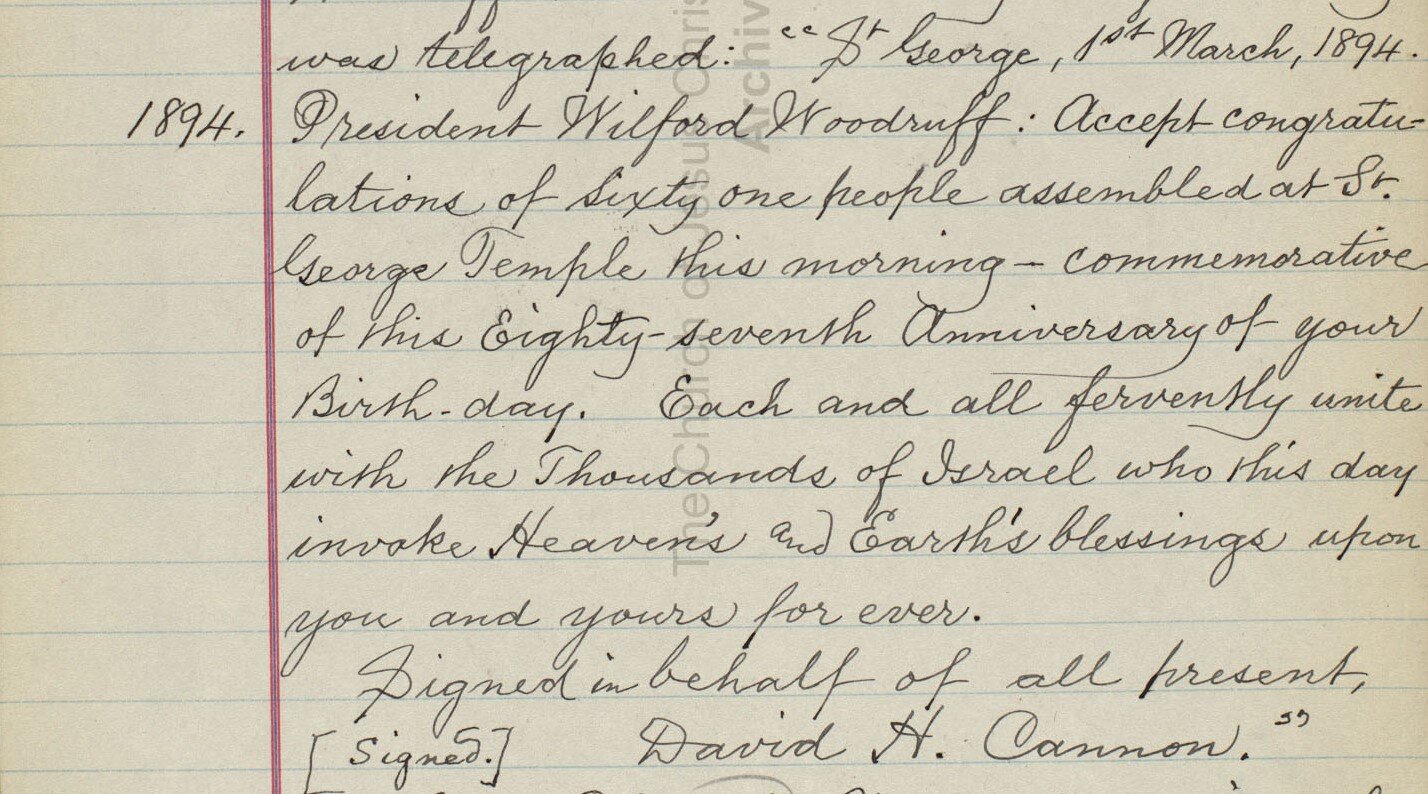 was telegraphed: "St George, 1st March, 1894.
1894. President Wilford Woodruff: Accept congratu-
lations of sixty one people assembled at St.
George Temple this morning – commemorative
of this Eighty-seventh Anniversary of your
Birth-day. Each and all fervently unite
with the Thousands of Israel who this day
invoke Heaven's and Earth's blessings upon
you and yours for ever.
Signed in behalf of all present,
[Signed.] David H. Cannon."
The Church of Jesus Chris
Archiv